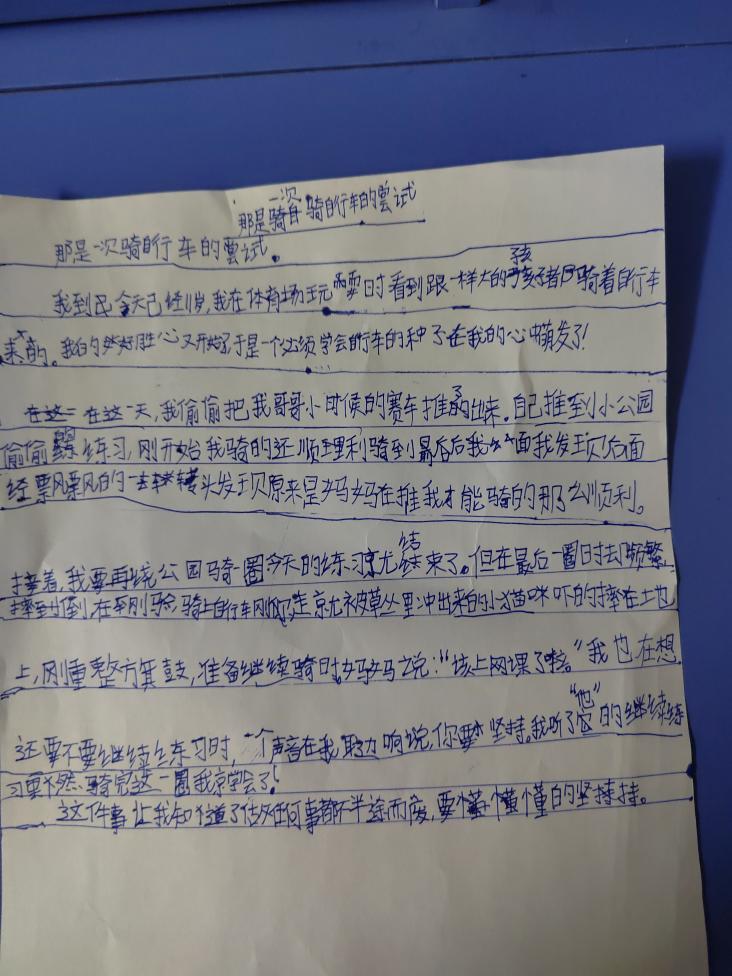 一次
那是骑自行车的尝试
那是一次骑自行车的尝试。
孩
我到今天已经岁,我在体育场玩耍时看到跟一样大的孩子都骑着自行车
来的。我的好胜心又开始了于是一个必须学会自行车的种子在我的心中萌发了!
在这一在这一天,我偷偷把我哥哥小时候的赛车推了出来,自己推到小公园
偷偷练习,刚开始我骑的还顺理利骑到最后后我面我发现后面
轻飘飘的一转头发现原来是妈妈在推我才能骑的那么顺利。
结
接着,我要再绕公园骑一圈今天的练习就结束了。但在最后一圈时去频繁
摔到倒在骑上自行车刚走就被草丛里冲出来的小猫咪吓的摔在土地
上,刚重整方箕鼓,准备继续骑时,妈妈说:“该上网课了啦。”我也在想
“他”
还要不要继续练习时,一个声音在我耳边响说,你要坚持。我听了的继续练
习果不然骑完这一圈我就学会了!
这件事让我知道了做任何事都不半途而废,要懂懂懂的坚持持。